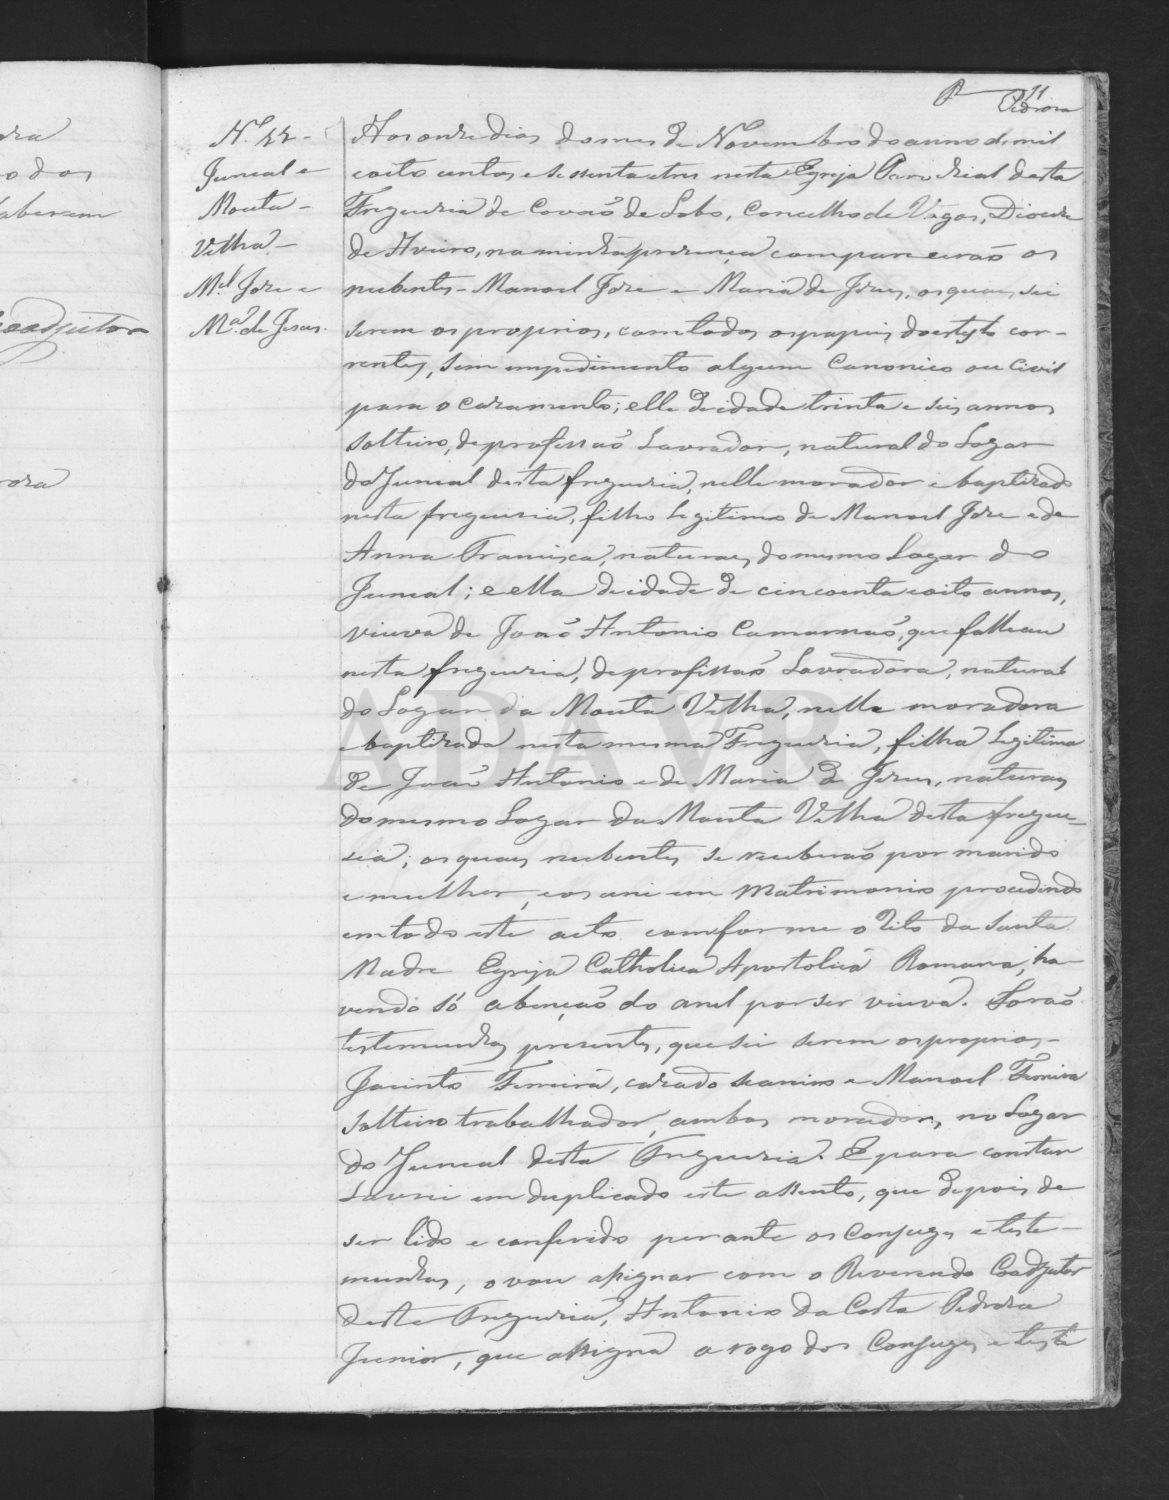 11
Pedrosa
Nº 22 -
Juncal e
Mouta -
Velha -
Mel Jose e
Ma de Jesus.
Aos onze dias do mes de Novembro do anno de mil
e oito centos e sessenta e tres nesta Egreja Parochial desta
Freguezia de Covaõ de Lobo, Concelho de Vagos, Diocese
de Aveiro, na minha presença compareceraõ os
nubentes - Manoel Jose e Maria de Jesus, os quaes sei
serem os proprios, com todos os papeis do estylo cor-
rentes, sem impedimento algum Canonico ou Civil
para o cazamento; elle de idade trinta e seis annos
solteiro, de profissaõ Lavrador, natural do Logar
do Juncal desta freguezia, nelle morador e baptizado
nesta freguezia, filho legitimo de Manoel Jose e de
Anna Francisca, naturaes do mesmo Logar do
Juncal; e ella de idade de cincoenta e oito annos,
viuva de Joaõ Antonio que falleceu
nesta freguezia, de profissaõ Lavradora, natural
do Logar da Mouta Velha, nelle moradora
e baptizada nesta mesma Freguezia, filha legitima
de Joaõ Antonio e de Maria de Jesus, naturaes
do mesmo Logar da Mouta Velha desta fregue-
zia; os quaes nubentes se receberaõ por marido
e mulher, e os uni em Matrimonio procedendo
em todo este acto comforme o Rito da Santa
Madre Egreja Catholica Apostolica Romana, ha-
vendo só a bençaõ do anel por ser viuva. Foraõ
testemunhas presentes, que sei serem os proprios -
Jacinto Ferreira, cazado e Manoel Ferreira
solteiro trabalhador, ambos moradores no Logar
do Juncal desta Freguezia. E para constar
Lavrei em duplicado este assento, que depois de
ser lido e conferido perante os Conjuges e teste-
munhas, o vou assignar com o Reverendo Coadjutor
desta Freguezia, Antonio da Costa Pedrosa
Junior, que assigna a rogo dos Conjuges e teste
ADAVR